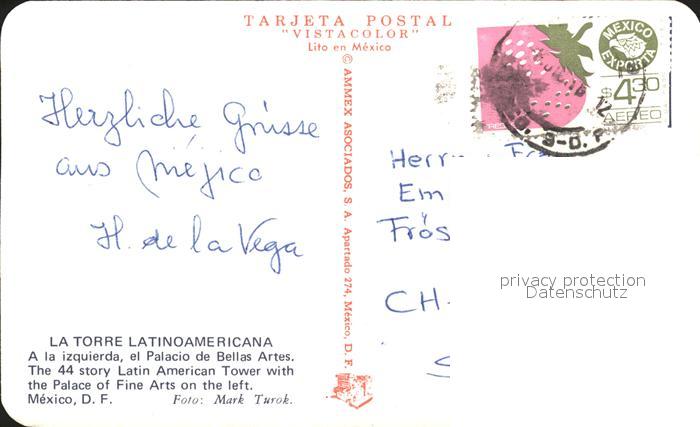 TARJETA POSTAL
"VISTACOLOR"
Lito en México
Herzliche Grüsse
aus Méjico
H. de la Vega
LA TORRE LATINOAMERICANA
A la izquierda, el Palacio de Bellas Artes.
The 44 story Latin American Tower with
the Palace of Fine Arts on the left.
México, D. F. Foto: Mark Turok.
© AMMEX ASOCIADOS, S. A. Apartado 274, México, D. F.
MEXICO
EXPORTA
$4.30
AEREO
9-D. F.
Herr
Em
Frös
CH-
privacy protection
Datenschutz